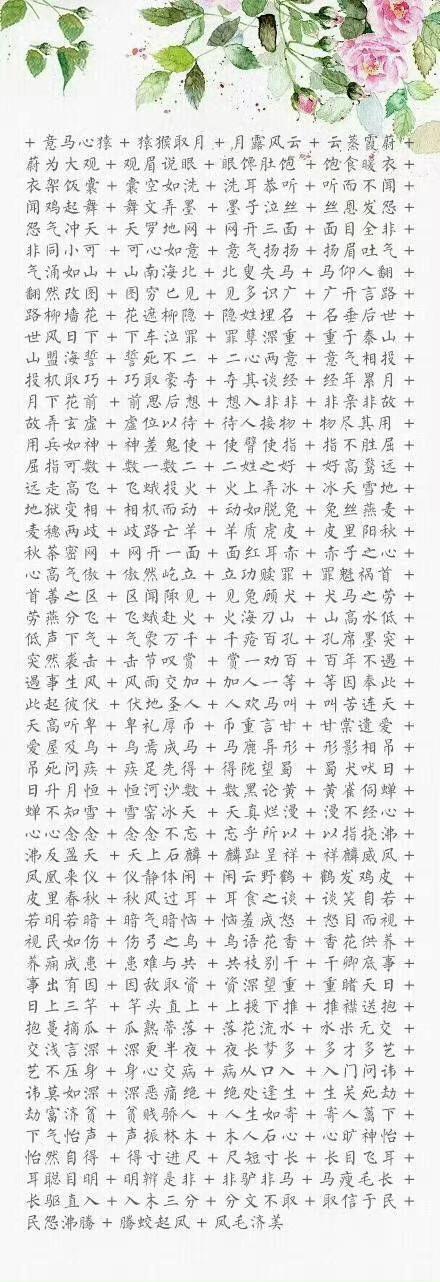 + 意马心猿 + 猿猴取月 + 月露风云 + 云蒸霞蔚 +
蔚为大观 + 观眉说眼 + 眼馋肚饱 + 饱食暖衣 +
衣架饭囊 + 囊空如洗 + 洗耳恭听 + 听而不闻 +
闻鸡起舞 + 舞文弄墨 + 墨子泣丝 + 丝恩发怨 +
怨气冲天 + 天罗地网 + 网开三面 + 面目全非 +
非同小可 + 可心如意 + 意气扬扬 + 扬眉吐气 +
气涌如山 + 山南海北 + 北叟失马 + 马仰人翻 +
翻然改图 + 图穷匕见 + 见多识广 + 广开言路 +
路柳墙花 + 花遮柳隐 + 隐姓埋名 + 名垂后世 +
世风日下 + 下车泣罪 + 罪孽深重 + 重于泰山 +
山盟海誓 + 誓死不二 + 二心两意 + 意气相投 +
投机取巧 + 巧取豪夺 + 夺其谈经 + 经年累月 +
月下花前 + 前思后想 + 想入非非 + 非亲非故 +
故弄玄虚 + 虚位以待 + 待人接物 + 物尽其用 +
用兵如神 + 神差鬼使 + 使臂使指 + 指不胜屈 +
屈指可数 + 数一数二 + 二姓之好 + 好高骛远 +
远走高飞 + 飞蛾投火 + 火上弄冰 + 冰天雪地 +
地狱变相 + 相机而动 + 动如脱兔 + 兔丝燕麦 +
麦穗两歧 + 歧路亡羊 + 羊质虎皮 + 皮里阳秋 +
秋荼密网 + 网开一面 + 面红耳赤 + 赤子之心 +
心高气傲 + 傲然屹立 + 立功赎罪 + 罪魁祸首 +
首善之区 + 区闻陬见 + 见兔顾犬 + 犬马之劳 +
劳燕分飞 + 飞蛾赴火 + 火海刀山 + 山高水低 +
低声下气 + 气象万千 + 千疮百孔 + 孔席墨突 +
突然袭击 + 击节叹赏 + 赏一劝百 + 百年不遇 +
遇事生风 + 风雨交加 + 加人一等 + 等因奉此 +
此起彼伏 + 伏地圣人 + 人欢马叫 + 叫苦连天 +
天高听卑 + 卑礼厚币 + 币重言甘 + 甘棠遗爱 +
爱屋及乌 + 乌焉成马 + 马鹿异形 + 形影相吊 +
吊死问疾 + 疾足先得 + 得陇望蜀 + 蜀犬吠日 +
日升月恒 + 恒河沙数 + 数黑论黄 + 黄雀伺蝉 +
蝉不知雪 + 雪窑冰天 + 天真烂漫 + 漫不经心 +
心心念念 + 念念不忘 + 忘乎所以 + 以指挠沸 +
沸反盈天 + 天上石麟 + 麟趾呈祥 + 祥麟威风 +
凤凰来仪 + 仪静体闲 + 闲云野鹤 + 鹤发鸡皮 +
皮里春秋 + 秋风过耳 + 耳食之谈 + 谈笑自若 +
若明若暗 + 暗气暗恼 + 恼羞成怒 + 怒目而视 +
视民如伤 + 伤弓之鸟 + 鸟语花香 + 香花供养 +
养痈成患 + 患难与共 + 共枝别干 + 干卿底事 +
事出有因 + 因敌取资 + 资深望重 + 重睹天日 +
日上三竿 + 竿头直上 + 上援下推 + 推襟送抱 +
抱蔓摘瓜 + 瓜熟蒂落 + 落花流水 + 水米无交 +
交浅言深 + 深更半夜 + 夜长梦多 + 多才多艺 +
艺不压身 + 身心交病 + 病从口入 + 入门问讳 +
讳莫如深 + 深恶痛绝 + 绝处逢生 + 生关死劫 +
劫富济贫 + 贫贱骄人 + 人生如寄 + 寄人篱下 +
下气怡声 + 声振林木 + 木人石心 + 心旷神怡 +
怡然自得 + 得寸进尺 + 尺短寸长 + 长目飞耳 +
耳聪目明 + 明辨是非 + 非驴非马 + 马瘦毛长 +
长驱直入 + 入木三分 + 分文不取 + 取信于民 +
民怨沸腾 + 腾蛟起凤 + 凤毛济美